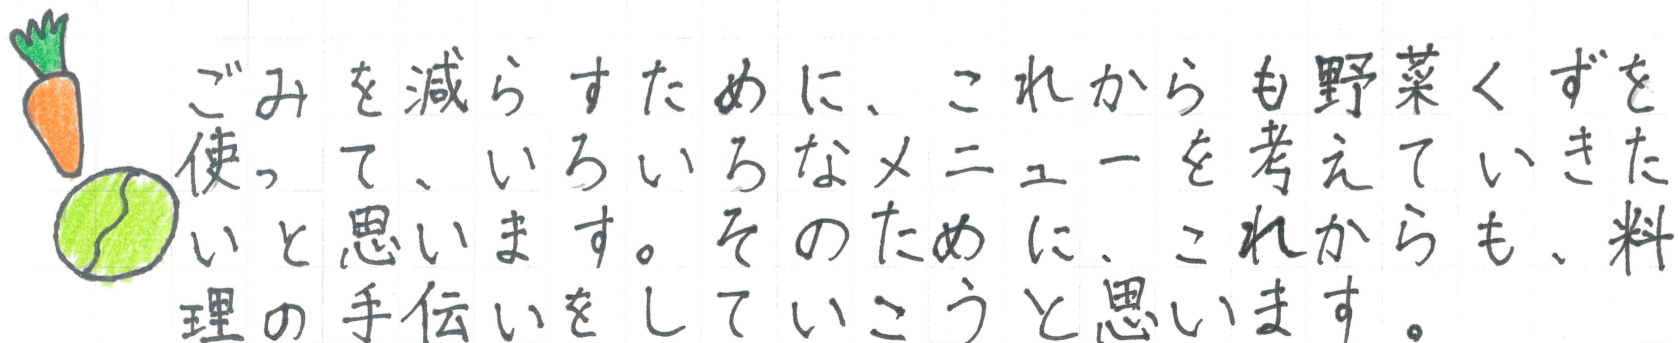 ごみを減らすために、これからも野菜くずを
使って、いろいろなメニューを考えていきた
いと思います。そのために、これからも、料
理の手伝いをしていこうと思います。